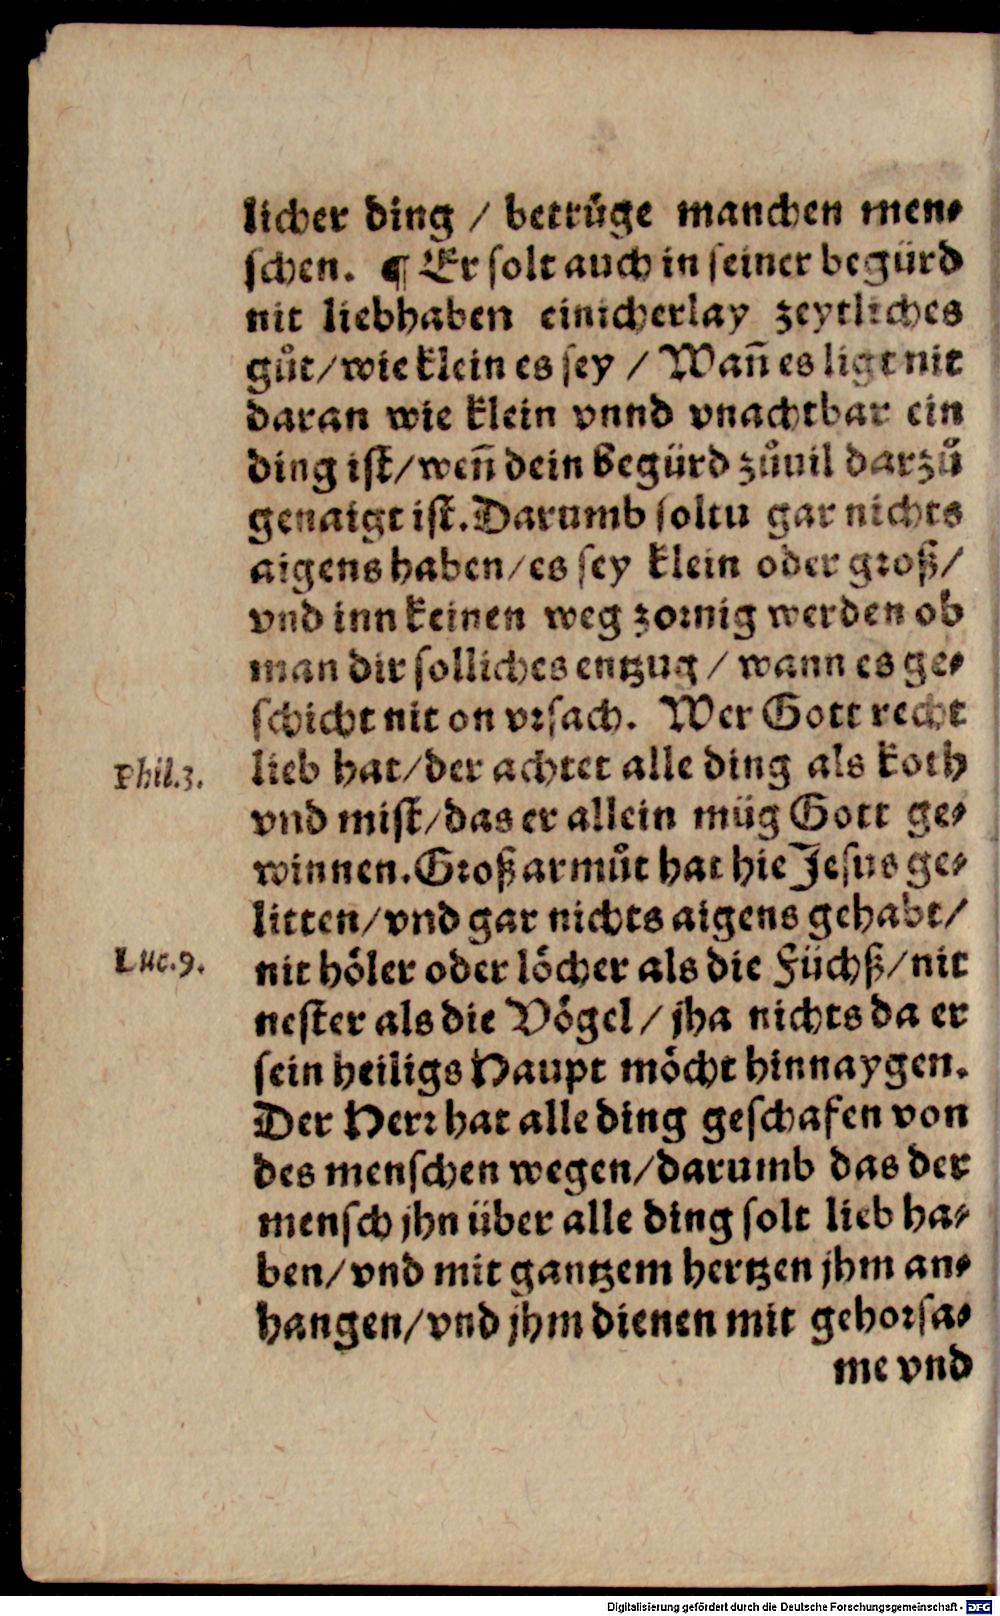 licher ding / betrüge manchen men⸗
schen. ¶ Er solt auch in seiner begürd
nit liebhaben einicherlay zeytliches
gůt/wie klein es sey / Wañ es ligt nit
daran wie klein vnnd vnachtbar ein
ding ist/weñ dein begürd zůuil darzů
genaigt ist. Darumb soltu gar nichts
aigens haben/es sey klein oder groß/
vnd inn keinen weg zornig werden ob
man dir solliches entzug / wann es ge⸗
schicht nit on vrsach. Wer Gott recht
Phil.3. lieb hat/der achtet alle ding als koth
vnd mist/das er allein müg Gott ge⸗
winnen. Groß armůt hat hie Jesus ge⸗
litten/vnd gar nichts aigens gehabt/
Luc.9. nit höler oder löcher als die Füchß/nit
nester als die Vögel / jha nichts da er
sein heiligs Haupt möcht hinnaygen.
Der Herr hat alle ding geschafen von
des menschen wegen/darumb das der
mensch jhn über alle ding solt lieb ha⸗
ben/vnd mit gantzem hertzen jhm an⸗
hangen/vnd jhm dienen mit gehorsa⸗
me vnd
Digitalisierung gefördert durch die Deutsche Forschungsgemeinschaft - DFG